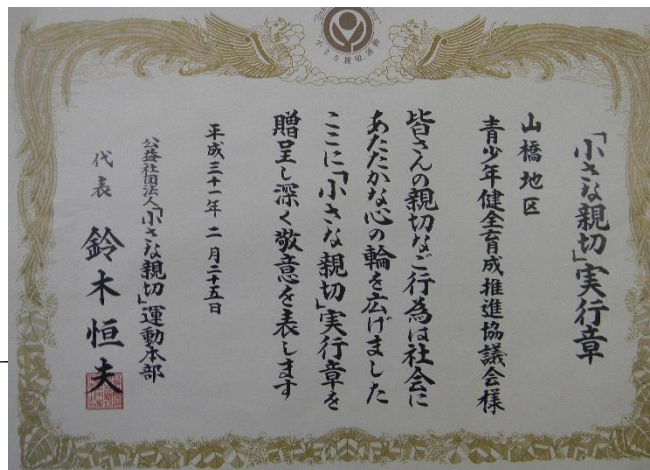 小さな親切運動
「小さな親切」実行章
山橋地区
青少年健全育成推進協議会様
皆さんの親切なご行為は社会に
あたたかな心の輪を広げました
ここに「小さな親切」実行章を
贈呈し深く敬意を表します
平成三十一年二月二十五日
公益社団法人「小さな親切」運動本部
代表 鈴木恒夫